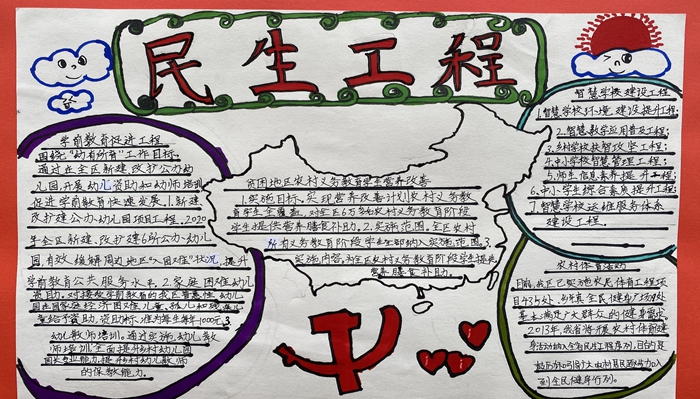 民生工程
学前教育促进工程
围绕"幼有所育"工作目标,
通过在全区新建、改扩公办幼
儿园、开展幼儿资助和幼师培训
促进学前教育快速发展。1.新建
改扩建公办幼儿园项目工程,2020
年全区新建、改扩建6所公办幼儿
园,有效缓解周边地区"入园难"状况,提升
学前教育公共服务水平。2.家庭困难幼儿
资助。对接受学前教育的我区普惠性幼儿
园在园家庭经济困难儿童、孤儿和残疾儿
童给予资助,资助标准为每生每年1000元。3.
幼儿教师培训。通过实施幼儿教
师培训,全面提升
的保教能力。
贫困地区农村义务教育学生营养改善
1.实施目标。实现营养改善计划农村义务教
育学生全覆盖,对全区6万多名农村义务教育阶段
学生提供营养膳食补助。2.实施范围。全区农村
所有义务教育阶段学生全部纳入实施范围。3.
实施内容。为全区农村义务教育阶段学生提供
营养膳食补助。
智慧学校建设工程
1.智慧学校环境建设提升工程;
2.智慧教学应用普及工程;
3.乡村学校扶智攻坚工程;
4.中小学校智慧管理工程;
5.师生信息素养提升工程;
6.中小学生综合素质提升工程;
7.智慧学校运维服务体系
建设工程。
农村体育活动
目前,我区已实施农民体育工程项
目435处、乡年全民健身广场9处
基本满足广大群众的健身需求
2013年,我省将开展农村体育健
身活动纳入全省民生服务列,目的是
到全民健身行列。